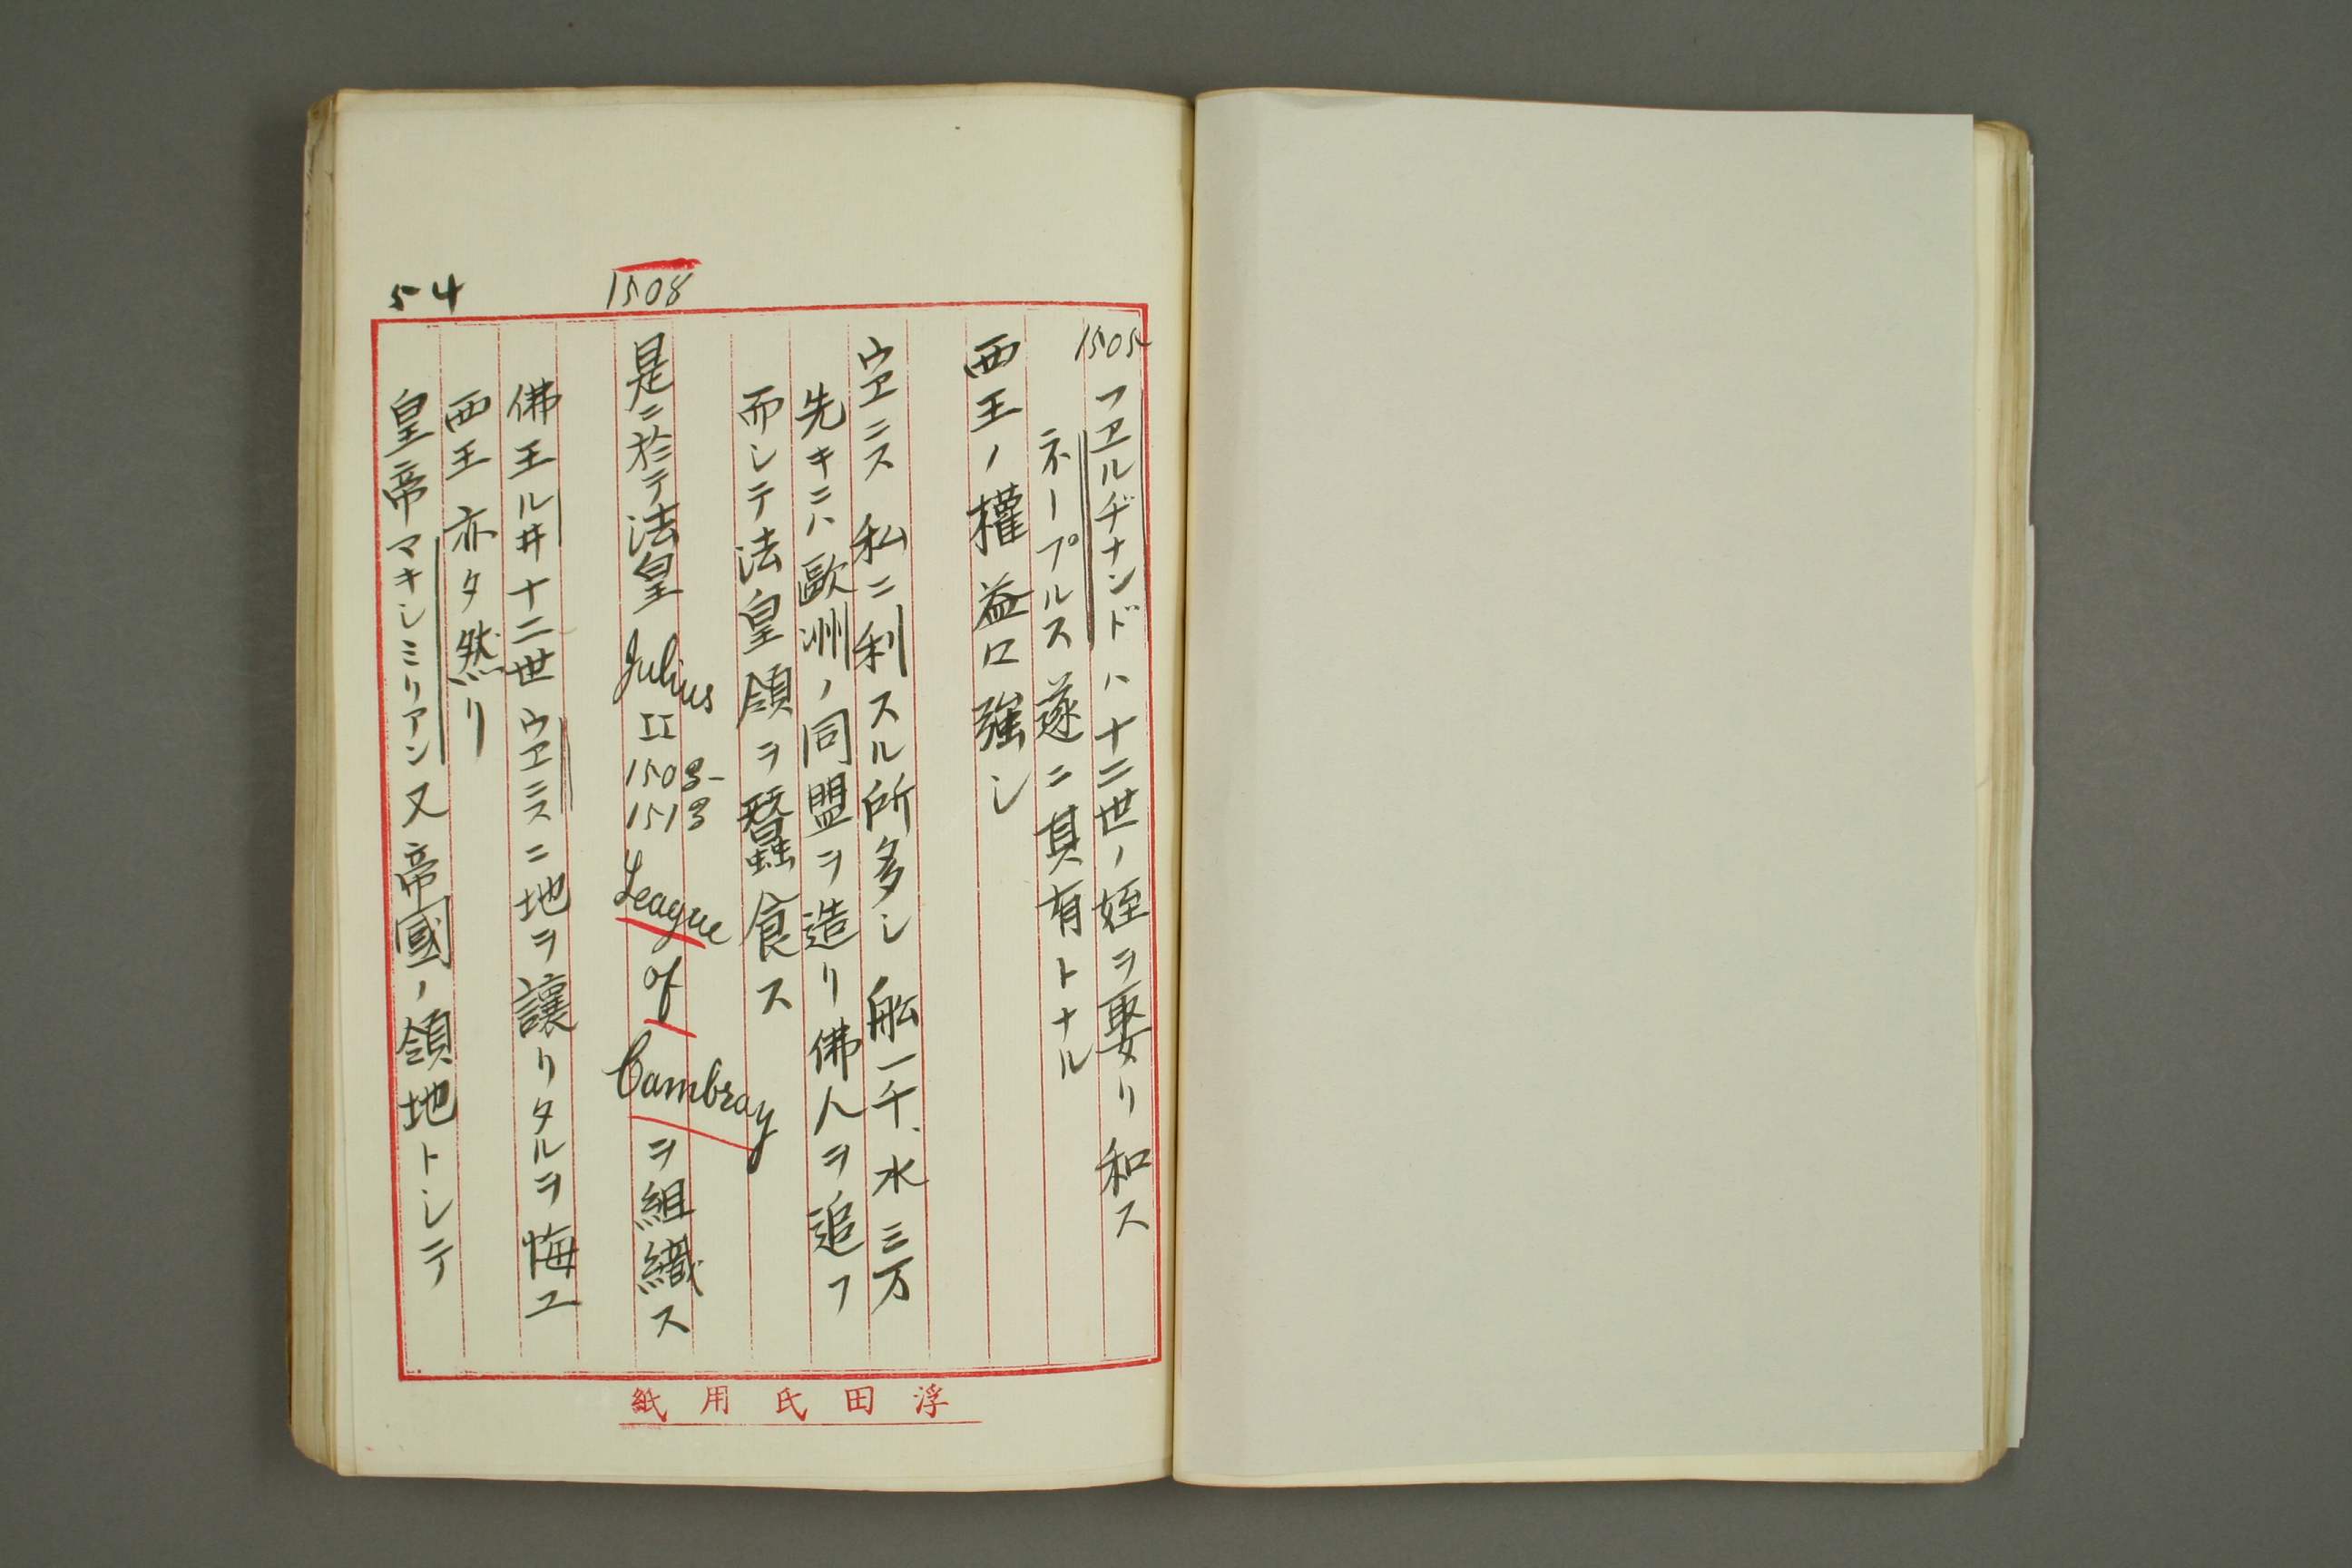 1505 フエルヂナンドハ十二世ノ姪ヲ娶リ和ス
ネープルス遂ニ其有トナル
西王ノ權益ロ強シ
ウエニス私ニ利スル所多シ舩一千、水三万
先キニハ歐洲ノ同盟ヲ造リ佛人ヲ追フ
而シテ法皇領ヲ蠶食ス
1508
是ニ於テ法皇 Julius II 1503-1513 League of Cambray ヲ組織ス
佛王ルヰ十二世ウエニスニ地ヲ讓リタルヲ悔ユ
西王亦タ然リ
皇帝マキシミリアン又帝國ノ領地トシテ
54
浮田氏用紙